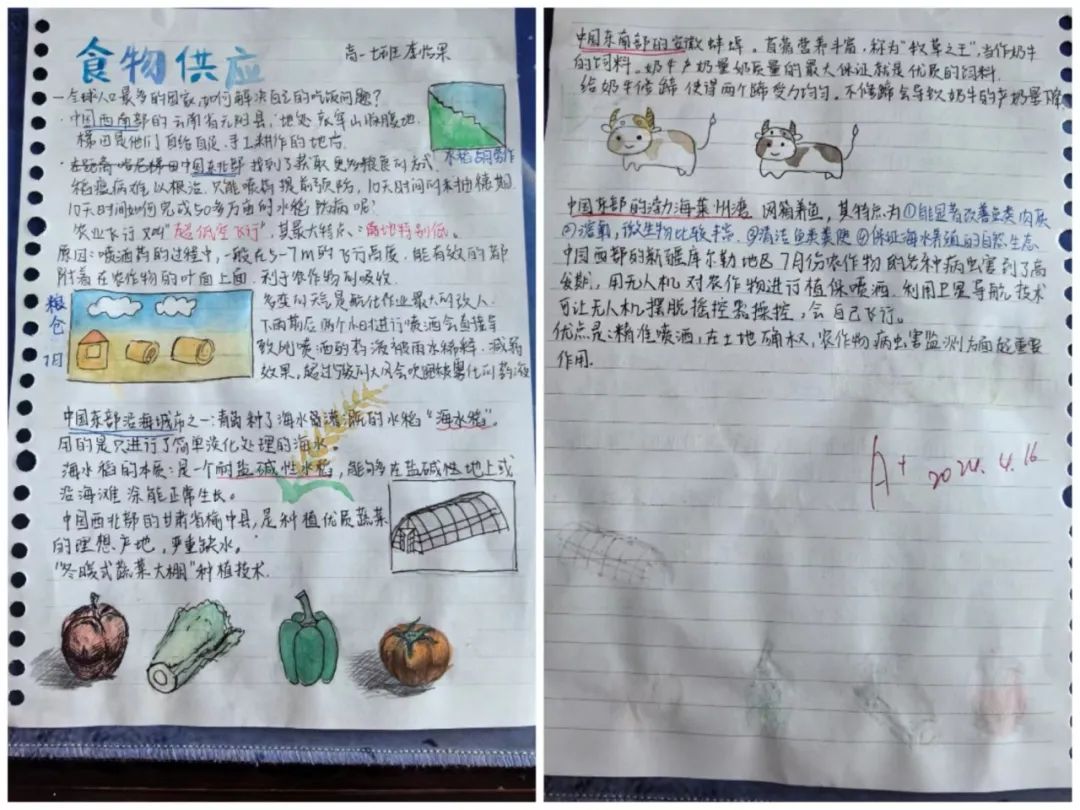 食物供应
高一七班 李怡果
一 全球人口最多的国家,如何解决自己的吃饭问题?
· 中国西南部的云南省元阳县,地处哀牢山南麓腹地.
梯田是他们自给自足、手工耕作的地方.
水稻
· 中国东北部 找到了获取更多粮食的方式.
稻瘟病难以根治.只能喷药提前预防,10天时间
10天时间如何完成50多万亩的水稻防病呢?
农业飞行又叫"超低空飞行",其最大特点:离地特别低。
原因:喷洒药的过程中,一般在5-7m的飞行高度.能有效的都
附着在农作物的叶面上面.利于农作物的吸收.
粮仓
多变的天气是航化作业最大的敌人.
下雨期后两个小时进行喷洒会直接导
致此喷洒的药液被雨水稀释.减弱
效果,超过5级的大风会吹跑被雾化的药液
中国东部沿海城市之一:青岛种了海水灌溉的水稻"海水稻"。
用的是只进行了简单淡化处理的海水。
海水稻的本质:是一个耐盐碱性水稻,能够在盐碱性地上或
沿海滩涂能正常生长。
中国西北部的甘肃省榆中县,是种植优质蔬菜
的理想产地,严重缺水。
"冬暖式蔬菜大棚"种植技术.
中国东南部的安徽蚌埠。苜蓿营养丰富,称为"牧草之王",当作奶牛
的饲料。奶牛产奶量奶质量的最大保证就是优质的饲料.
给奶牛修蹄 使得两个蹄受力均匀。不修蹄会导致奶牛的产奶量下降
中国东部的渤海莱州湾 网箱养鱼,其特点为①能显著改善鱼类肉质
②溶氧,微生物比较丰富.③清洁鱼类粪便④保证海水养殖的自然生态
中国西部的新疆库尔勒地区 7月份农作物的各种病虫害到了高
发期,用无人机对农作物进行植保喷洒.利用卫星导航技术
可让无人机摆脱摇控器操控,会自己飞行。
优点是:精准喷洒,在土地确权,农作物病虫害监测方面起重要
作用.
A+ 2024.4.16